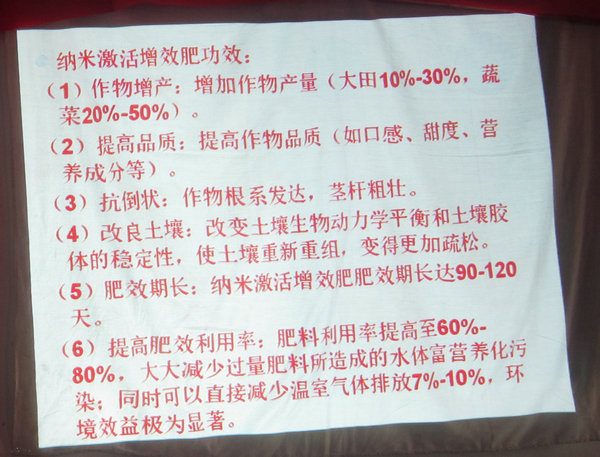 纳米激活增效肥功效：
（1）作物增产：增加作物产量（大田10%-30%，蔬
菜20%-50%）。
（2）提高品质：提高作物品质（如口感、甜度、营
养成分等）。
（3）抗倒状：作物根系发达，茎杆粗壮。
（4）改良土壤：改变土壤生物动力学平衡和土壤胶
体的稳定性，使土壤重新重组，变得更加疏松。
（5）肥效期长：纳米激活增效肥肥效期长达90-120
天。
（6）提高肥效利用率：肥料利用率提高至60%-
80%，大大减少过量肥料所造成的水体富营养化污
染；同时可以直接减少温室气体排放7%-10%，环
境效益极为显著。